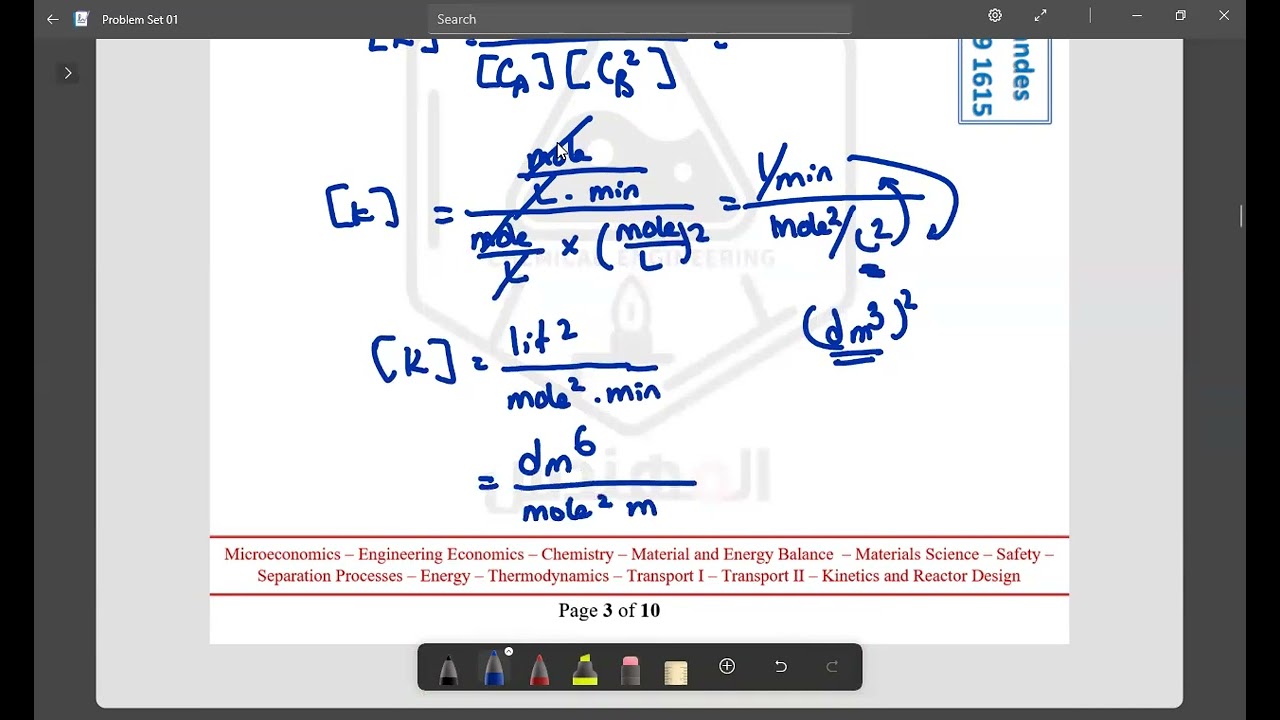 Problem Set 01
Search
andes
9 1615
[C_A][C_B^2]
[k] = (mole/(L . min)) / (mole/L × (mole/L)^2) = (1/min) / (mole^2/L^2)
CHEMICAL ENGINEERING
(dm^3)^2
[k] = lit^2 / (mole^2 . min)
= dm^6 / (mole^2 m
المهندس
Microeconomics – Engineering Economics – Chemistry – Material and Energy Balance – Materials Science – Safety –
Separation Processes – Energy – Thermodynamics – Transport I – Transport II – Kinetics and Reactor Design
Page 3 of 10